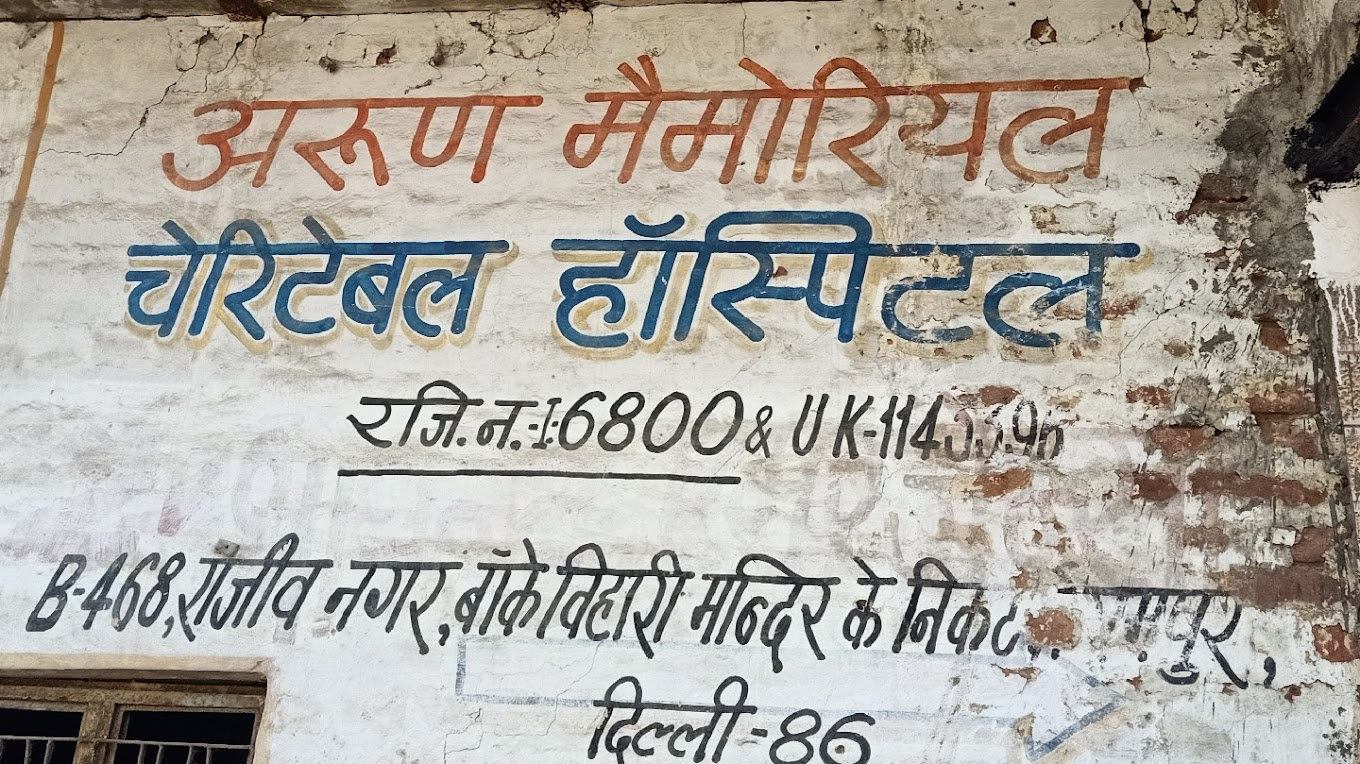 अरूण मैमोरियल
चेरिटेबल हॉस्पिटल
रजि. न.-I-6800 & UK-
B-468, राजीव नगर, बॉके विहारी मन्दिर के निकट,
दिल्ली-86